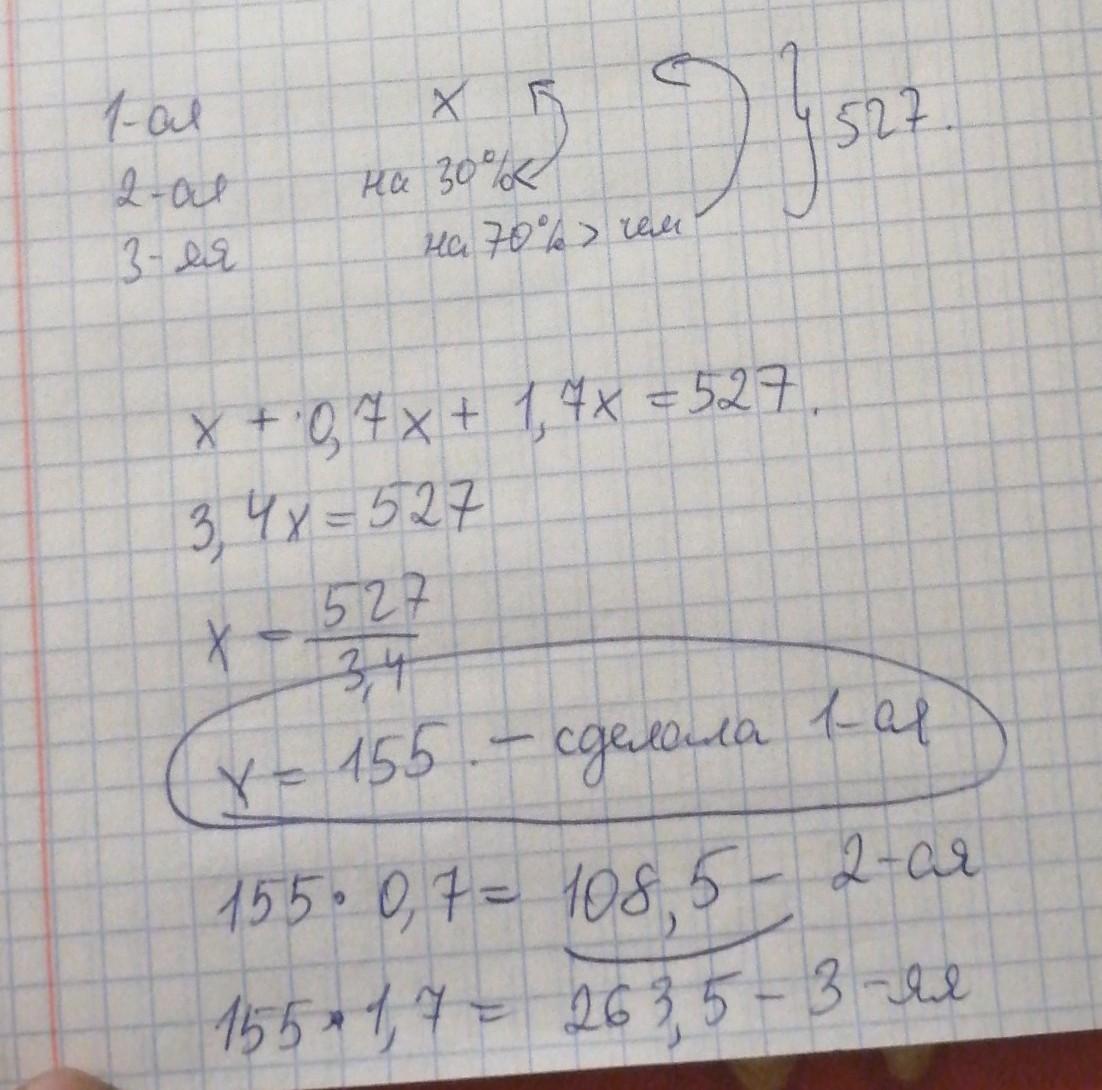 1-ая x } 527.
2-ая на 30% <
3-яя на 70% > чем
x + 0,7x + 1,7x = 527.
3,4x = 527
x = 527/3,4
x = 155. - сделала 1-ая
155 · 0,7 = 108,5 - 2-ая
155 · 1,7 = 263,5 - 3-яя